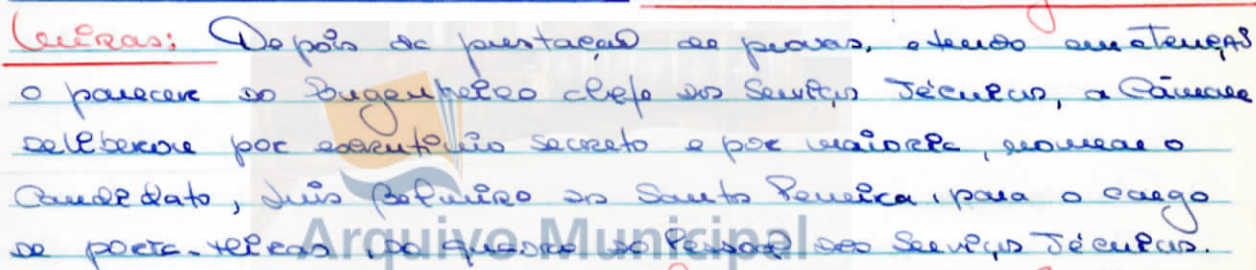 Miras: Depois da prestação de provas, e tendo em atenção
o parecer do Engenheiro chefe dos Serviços Técnicos, a Câmara
deliberou por escrutínio secreto e por maioria, nomear o
Candidato, Luis Belmiro do Santos Pereira, para o cargo
de porta-miras do quadro do Pessoal dos Serviços Técnicos.
Arquivo Municipal